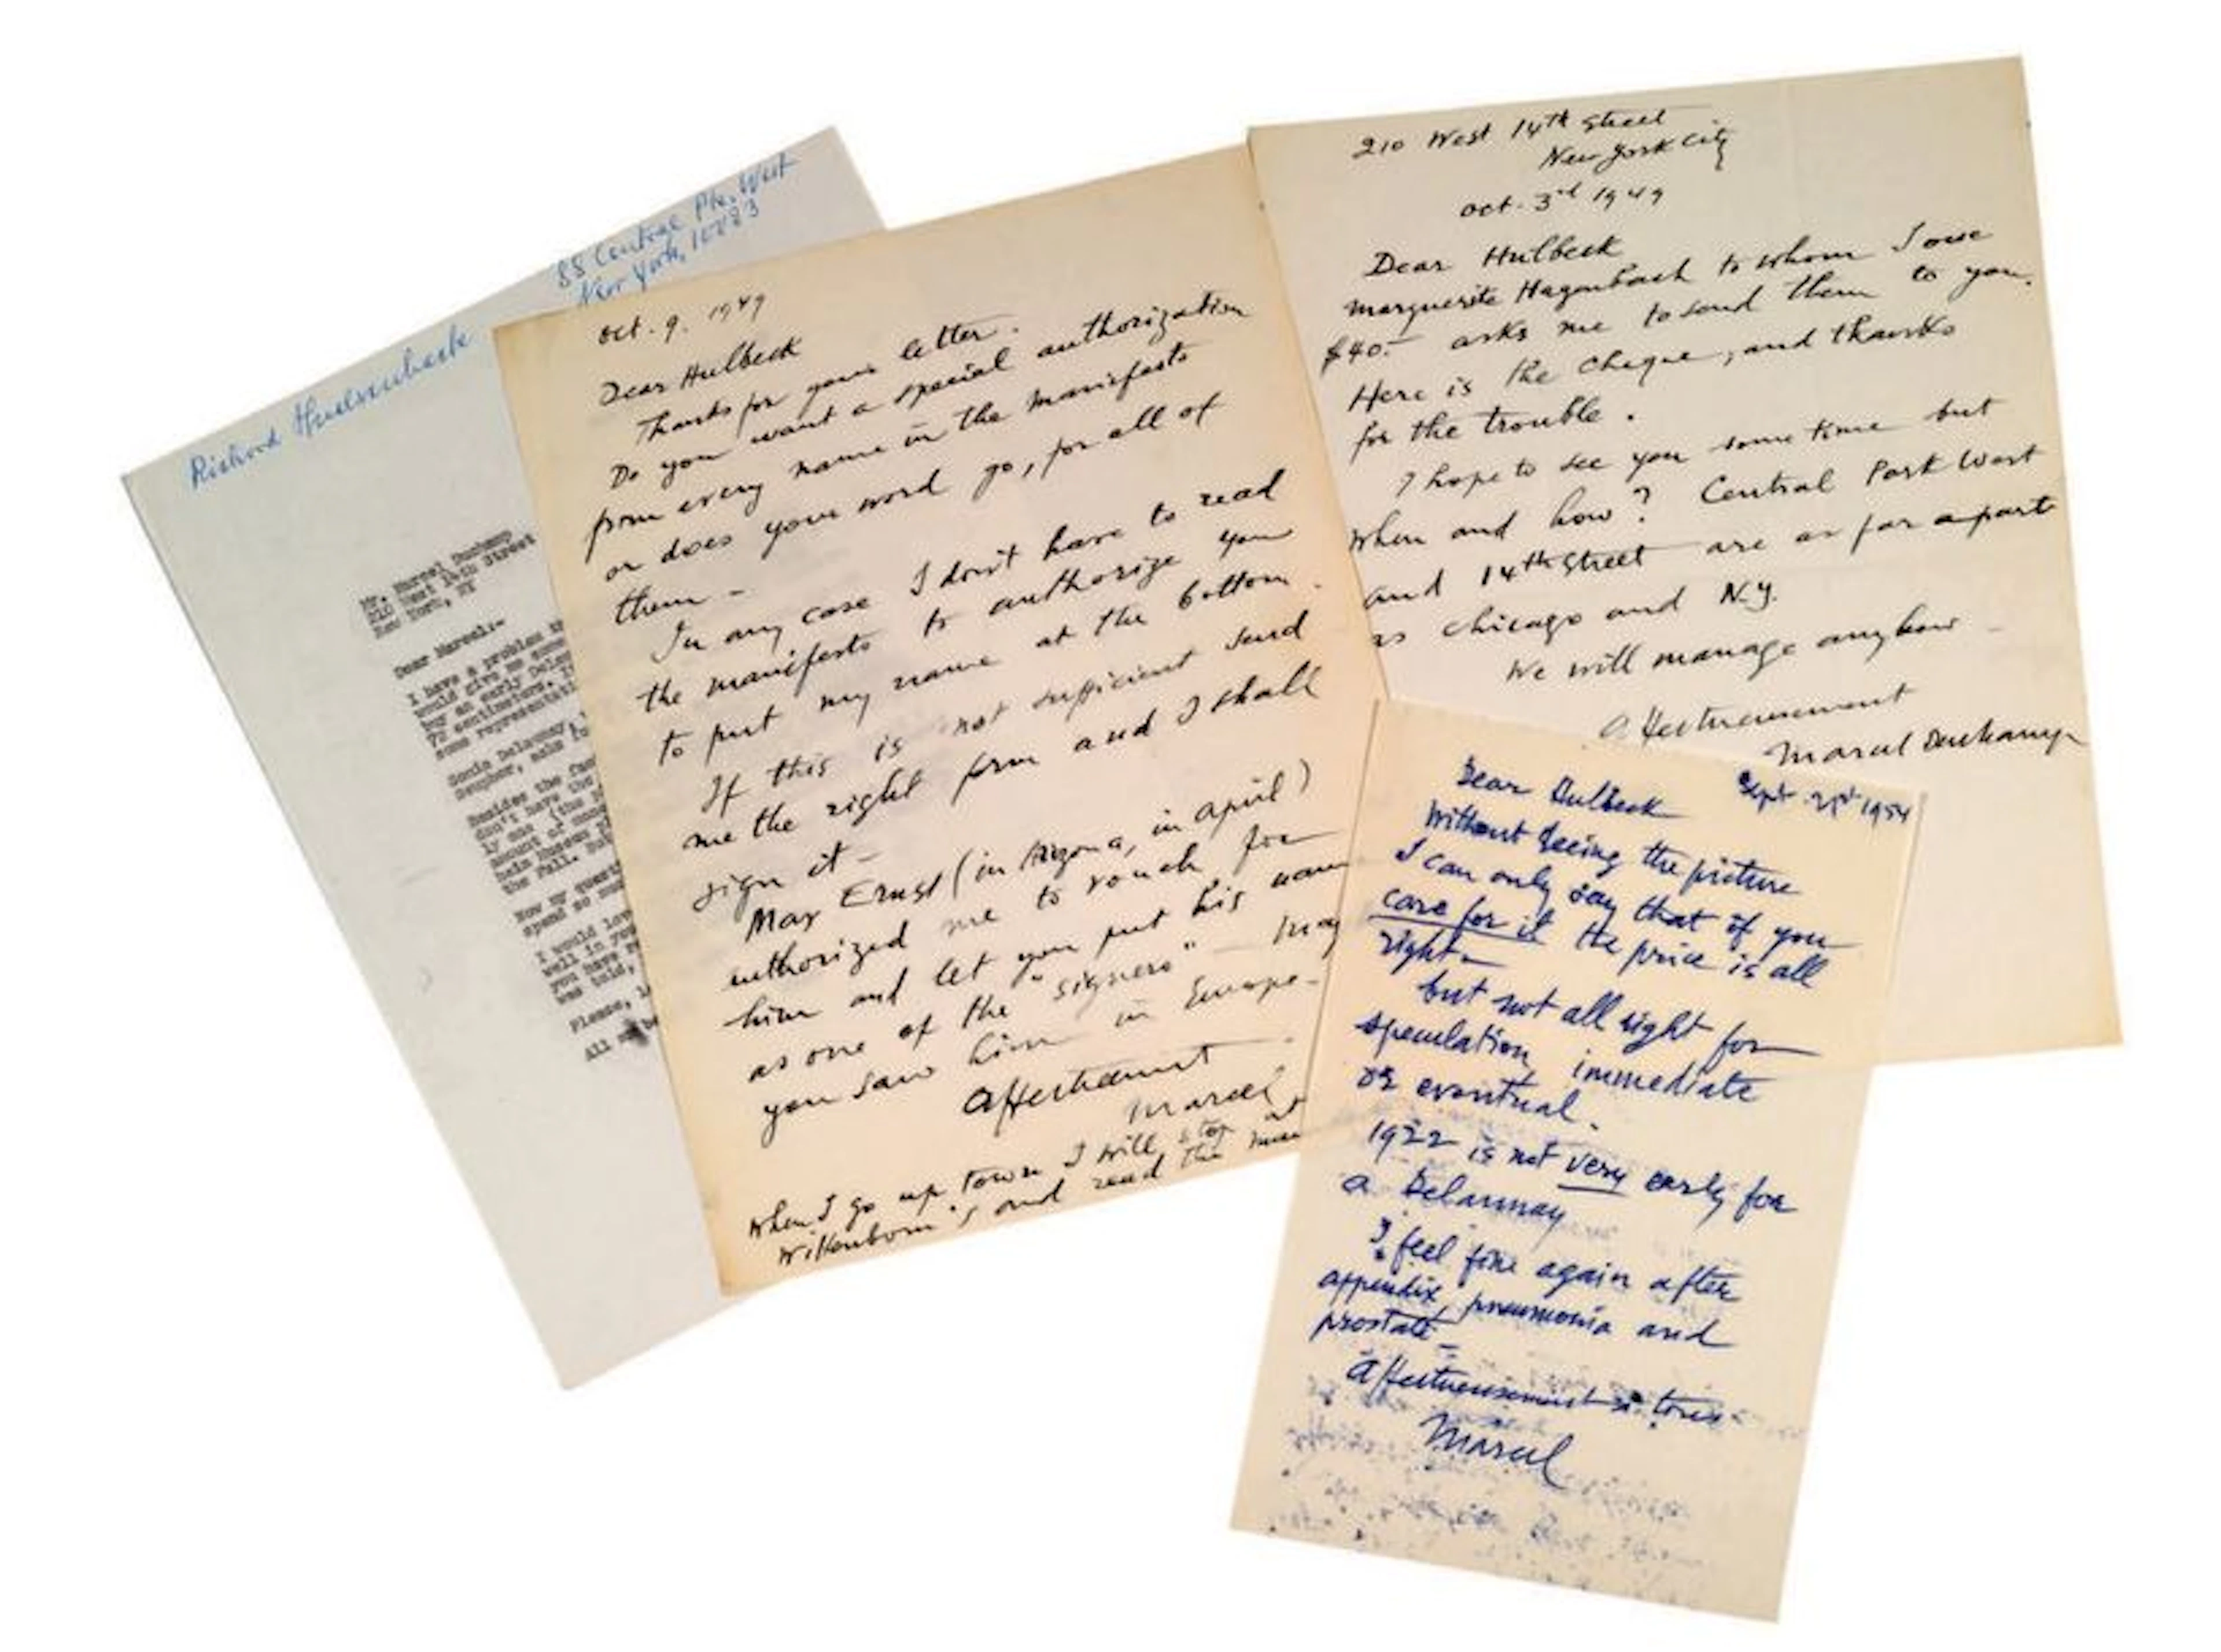 88 Central Pk. West
New York, 10023
Richard Huelsenbeck
Mr. Marcel Duchamp
210 West 14th Street
New York, NY
Dear Marcel:-
I have a problem
would give me
by an early
72 centimeters.
some
Sonia Delaunay,
Besides the
don't have the
ly one (the
amount of
heim Museum
the Fall.
Now my
spend so
I would
well in
you have
was told,
Please,
All
oct. 9. 1949
Dear Hulbeck
Thanks for your letter.
Do you want a special authorization
from every name in the manifesto
or does your word go, for all of
them -
In any case I don't have to read
the manifesto to authorize you
to put my name at the bottom.
If this is not sufficient send
me the right form and I shall
sign it -
Max Ernst (in Arizona, in april)
authorized me to vouch for
him and let you put his name
as one of the "signers" -
you saw him in Europe -
affectueusement
Marcel
When I go up town I will stop at
Wittenborn's and read the
210 West 14th Street
New York City
oct. 3rd 1949
Dear Hulbeck
Marguerite Hagenbach to whom I owe
$40.- asks me to send them to you.
Here is the cheque, and thanks
for the trouble.
I hope to see you some time but
when and how? Central Park West
and 14th Street are as far apart
as Chicago and N.Y.
We will manage anyhow -
affectueusement
Marcel Duchamp
Dear Hulbeck
Sept. 1954
Without seeing the picture
I can only say that if you
care for it the price is all
right -
but not all right for
speculation immediate
or eventual.
1922 is not very early for
a Delaunay
I feel fine again after
appendix, pneumonia and
prostate -
affectueusement à tous
Marcel